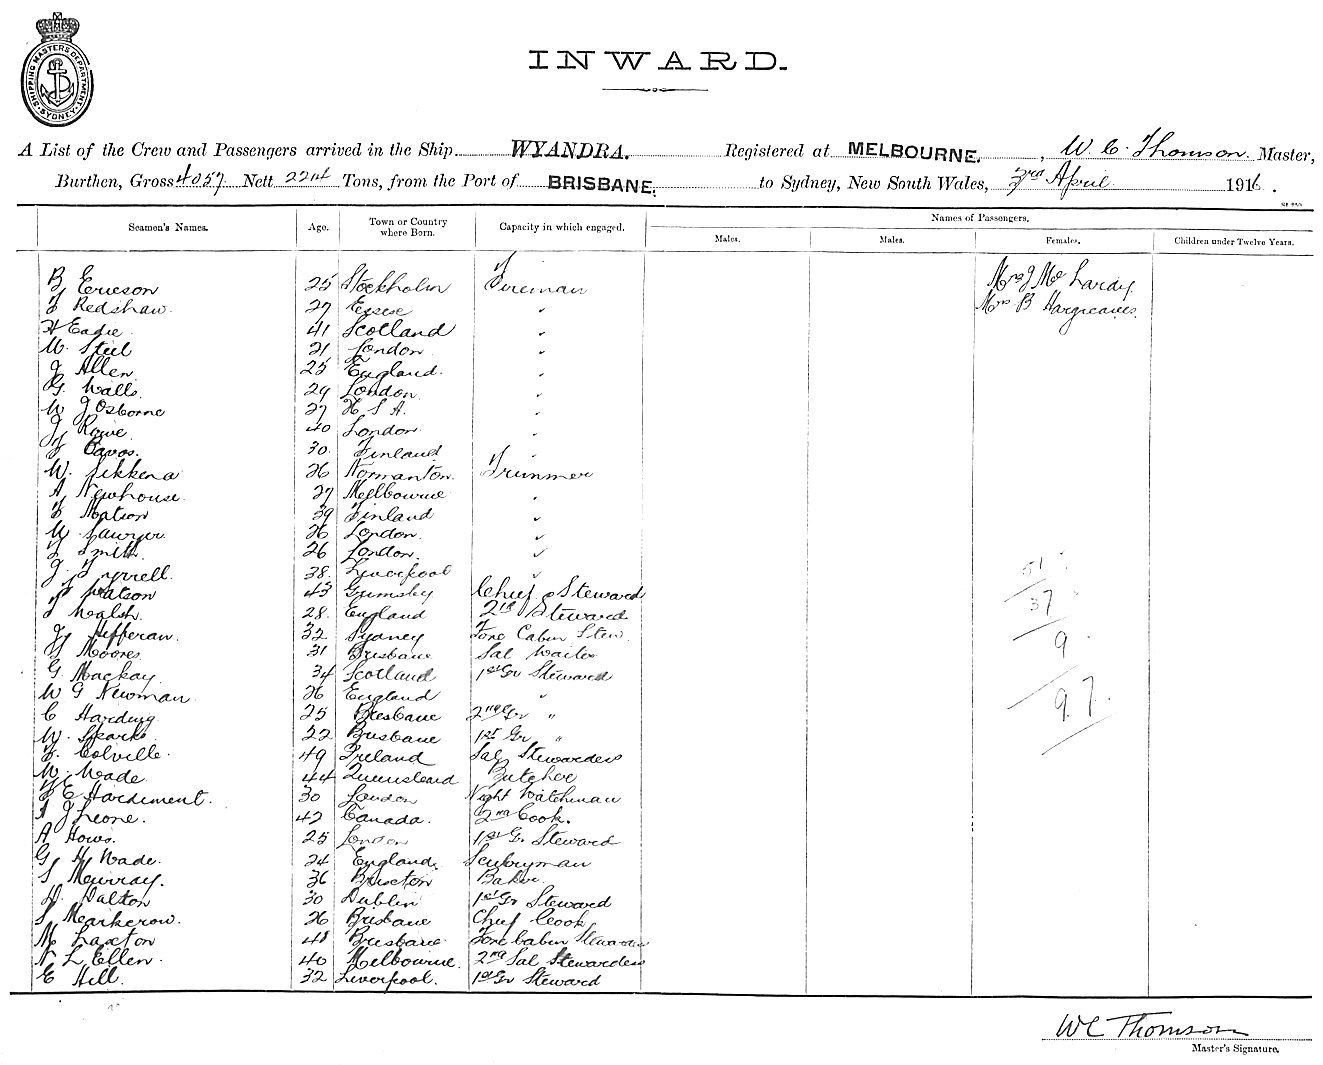 SHIPPING MASTERS DEPARTMENT SYDNEY
INWARD.
A List of the Crew and Passengers arrived in the Ship WYANDRA. Registered at MELBOURNE. , W C Thomson. Master,
Burthen, Gross 4057 Nett Tons, from the Port of BRISBANE. to Sydney, New South Wales, 3rd April 1916.
Seamen's Names. Age. Town or Country where Born. Capacity in which engaged. Names of Passengers.
Males. Males. Females. Children under Twelve Years.
B Ericson 25 Stockholm Fireman Mrs J Mc Lardy
Redshaw 27 Essex " Mrs B Hargreaves
H Eadie 41 Scotland "
W. Steel 21 London "
J Allen 25 England. "
G. Walls 29 London "
W J Osborne 27 "
J Rowe 40 London "
30 Finland "
W. 26 Normanton. Trimmer
A Newhouse 27 Melbourne "
39 Finland "
W Sawyer 26 London. "
Smith 26 London. "
J. Tyrrell 38. Liverpool "
Watson 43 Grimsby Chief Steward
Walsh 28. England 2nd Steward
Hefferan. 32 Sydney Fore Cabin Stew
Moores 31 Brisbane Sal Waiter
G Mackay 34 Scotland 1st Gr Steward
W G Newman 26 England "
C Harding 25 Brisbane 2nd Gr "
W. Sparks 22 Brisbane 1st Gr "
Colville 49 Ireland Sal Stewardess
W. Wade 44 Queensland Butcher
E Hardiment. 30 London Night Watchman
J Leone. 42 Canada. 2nd Cook.
A Hows. 25 London 1st Gr Steward
G H Wade. 24 England.
Murray. 36 Brixton Baker
Dalton 30 Dublin 1st Gr Steward
26 Brisbane Chief Cook
M Laxton 48 Brisbane Fore Cabin Stewardess
N L Ellen. 40 Melbourne. 2nd Sal Stewardess
E Hill. 32 Liverpool. 1st Gr Steward
51
37
9
97.
WC Thomson
Master's Signature.